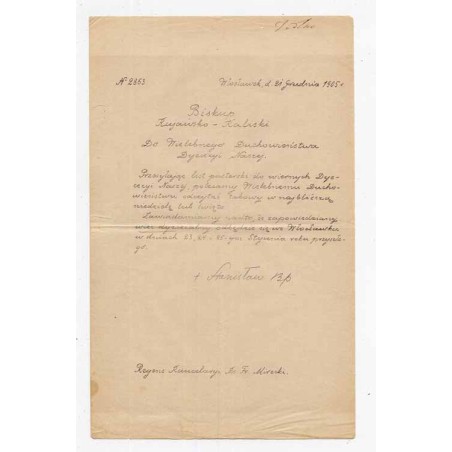 № 2863 Włocławek, d. 30 Grudnia 1905 r.
Biskup
Kujawsko-Kaliski
Do Wielebnego Duchowieństwa
Dyecezyi Naszej.
Przesyłając list pasterski do wiernych Dye-
cezyi Naszej polecamy Wielebnemu Ducho-
wieństwu odczytać takowy w najbliższą
niedzielę lub święto.
Zawiadamiamy nadto, że zapowiedziany
wiec dyecezalny odbędzie się we Włocławku
w dniach 23, 24 i 25-ym Stycznia roku przyszłe-
go.
+ Stanisław Bp
Regens Kancelaryi Ks. Fr. Mirecki.